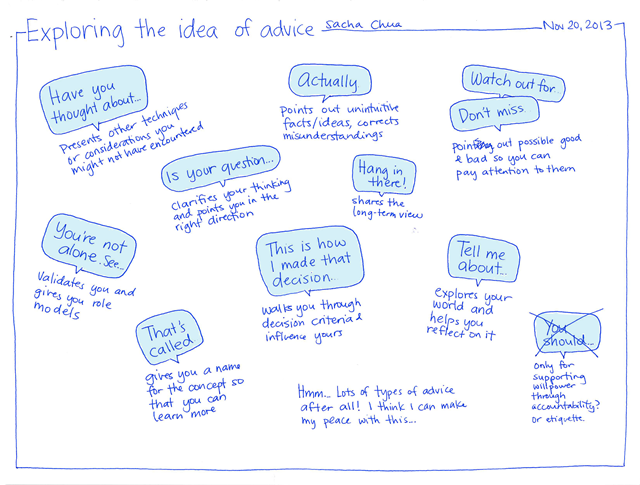 Exploring the idea of advice Sacha Chua Nov 20, 2013
Have you
thought about...
Presents other techniques
or considerations you
might not have encountered
Actually
Points out unintuitive
facts/ideas, corrects
misunderstandings
Watch out for
Don't miss
pointing out possible good
& bad so you can
pay attention to them
Is your question...
clarifies your thinking
and points you in the
right direction
Hang in
there!
shares the
long-term view
You're not
alone. See...
Validates you and
gives you role
models
This is how
I made that
decision...
walks you through
decision criteria &
influence yours
Tell me
about...
explores your
world and
helps you
reflect on it
That's
called
gives you a name
for the concept so
that you can
learn more
You
should...
only for
supporting
willpower
through
accountability?
or etiquette.
Hmm... Lots of types of advice
after all! I think I can make
my peace with this...